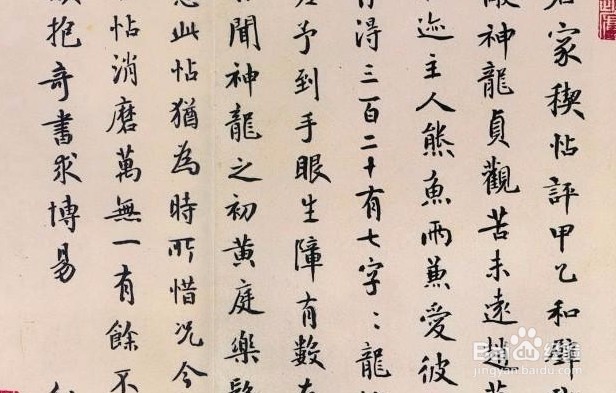 家稧帖評甲乙和璧
神龍貞觀苦未遠趙
迹主人熊魚兩兼愛彼
得三百二十有七字〻龍
予到手眼生障有數
聞神龍之初黃庭樂毅
此帖猶為時所惜況今
帖消磨萬無一有餘不
抱奇書求博易
Baidu经验
jingyan.baidu.com